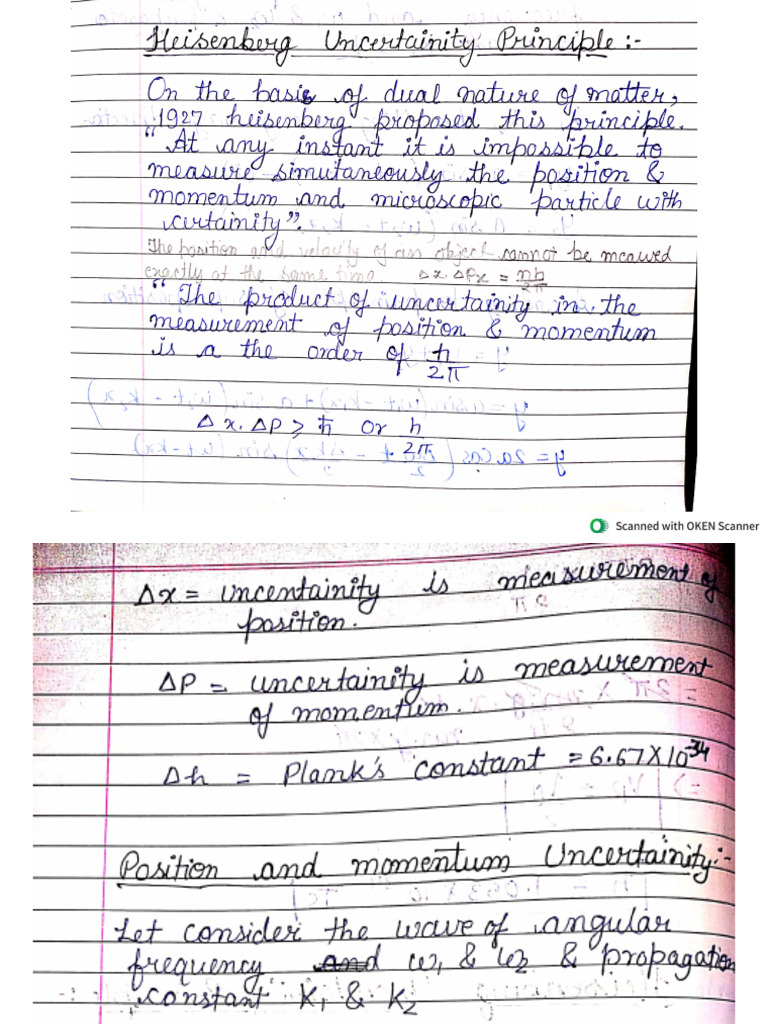 Heisenberg Uncertainity Principle :-
On the basis of dual nature of matter,
1927 heisenberg proposed this principle.
"At any instant it is impossible to
measure simutaneously the position &
momentum and microscopic particle with
certainity".
The position and velocity of an object cannot be meawed
exactly at the same time Δx.ΔPx = nh/2π
"The product of uncertainity in the
measurement of position & momentum
is a the order of ħ/2π
Δx.ΔP ≥ ħ or h/2π.
Scanned with OKEN Scanner
Δx = uncentainity is measurement of
position.
ΔP = uncertainity is measurement
of momentum.
Δh = Plank's constant = 6.67X10⁻³⁴
Position and momentum Uncertainity :-
Let consider the wave of angular
frequency and ω₁ & ω₂ & propagation
constant K₁ & K₂